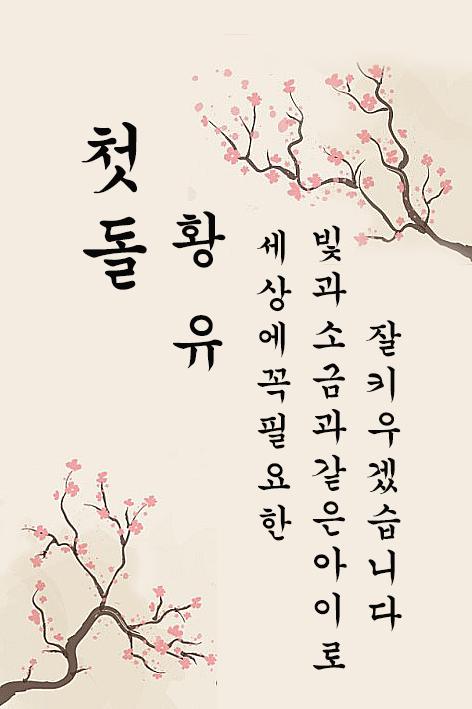 첫돌
황유
세상에꼭필요한
빛과소금과같은아이로
잘키우겠습니다